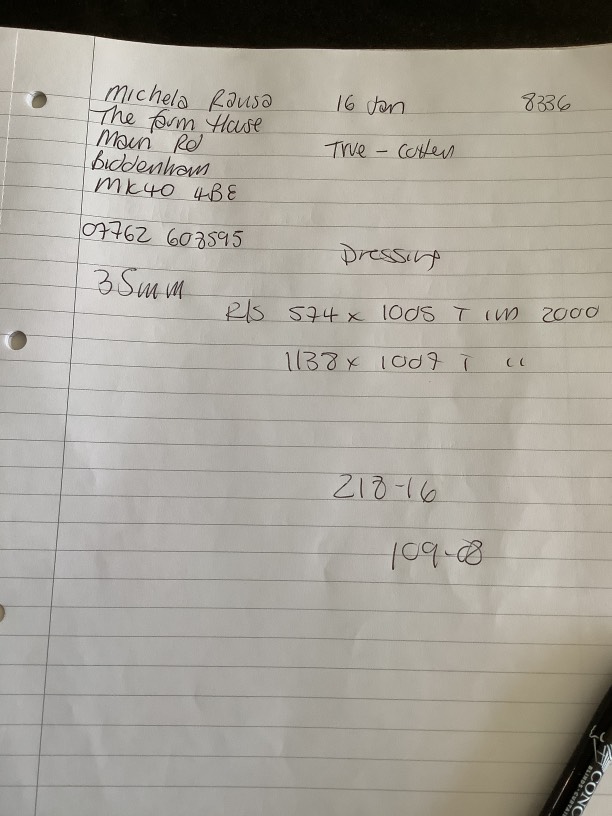 Michela Rausa 16 Jan 8336
The farm House
Main Rd True - Cotten
Biddenham
MK40 4BE
07762 603595
Dressing
35mm
R/S 574 x 1005 T IM 2000
1138 x 1007 T "
218-16
109-08
CONC